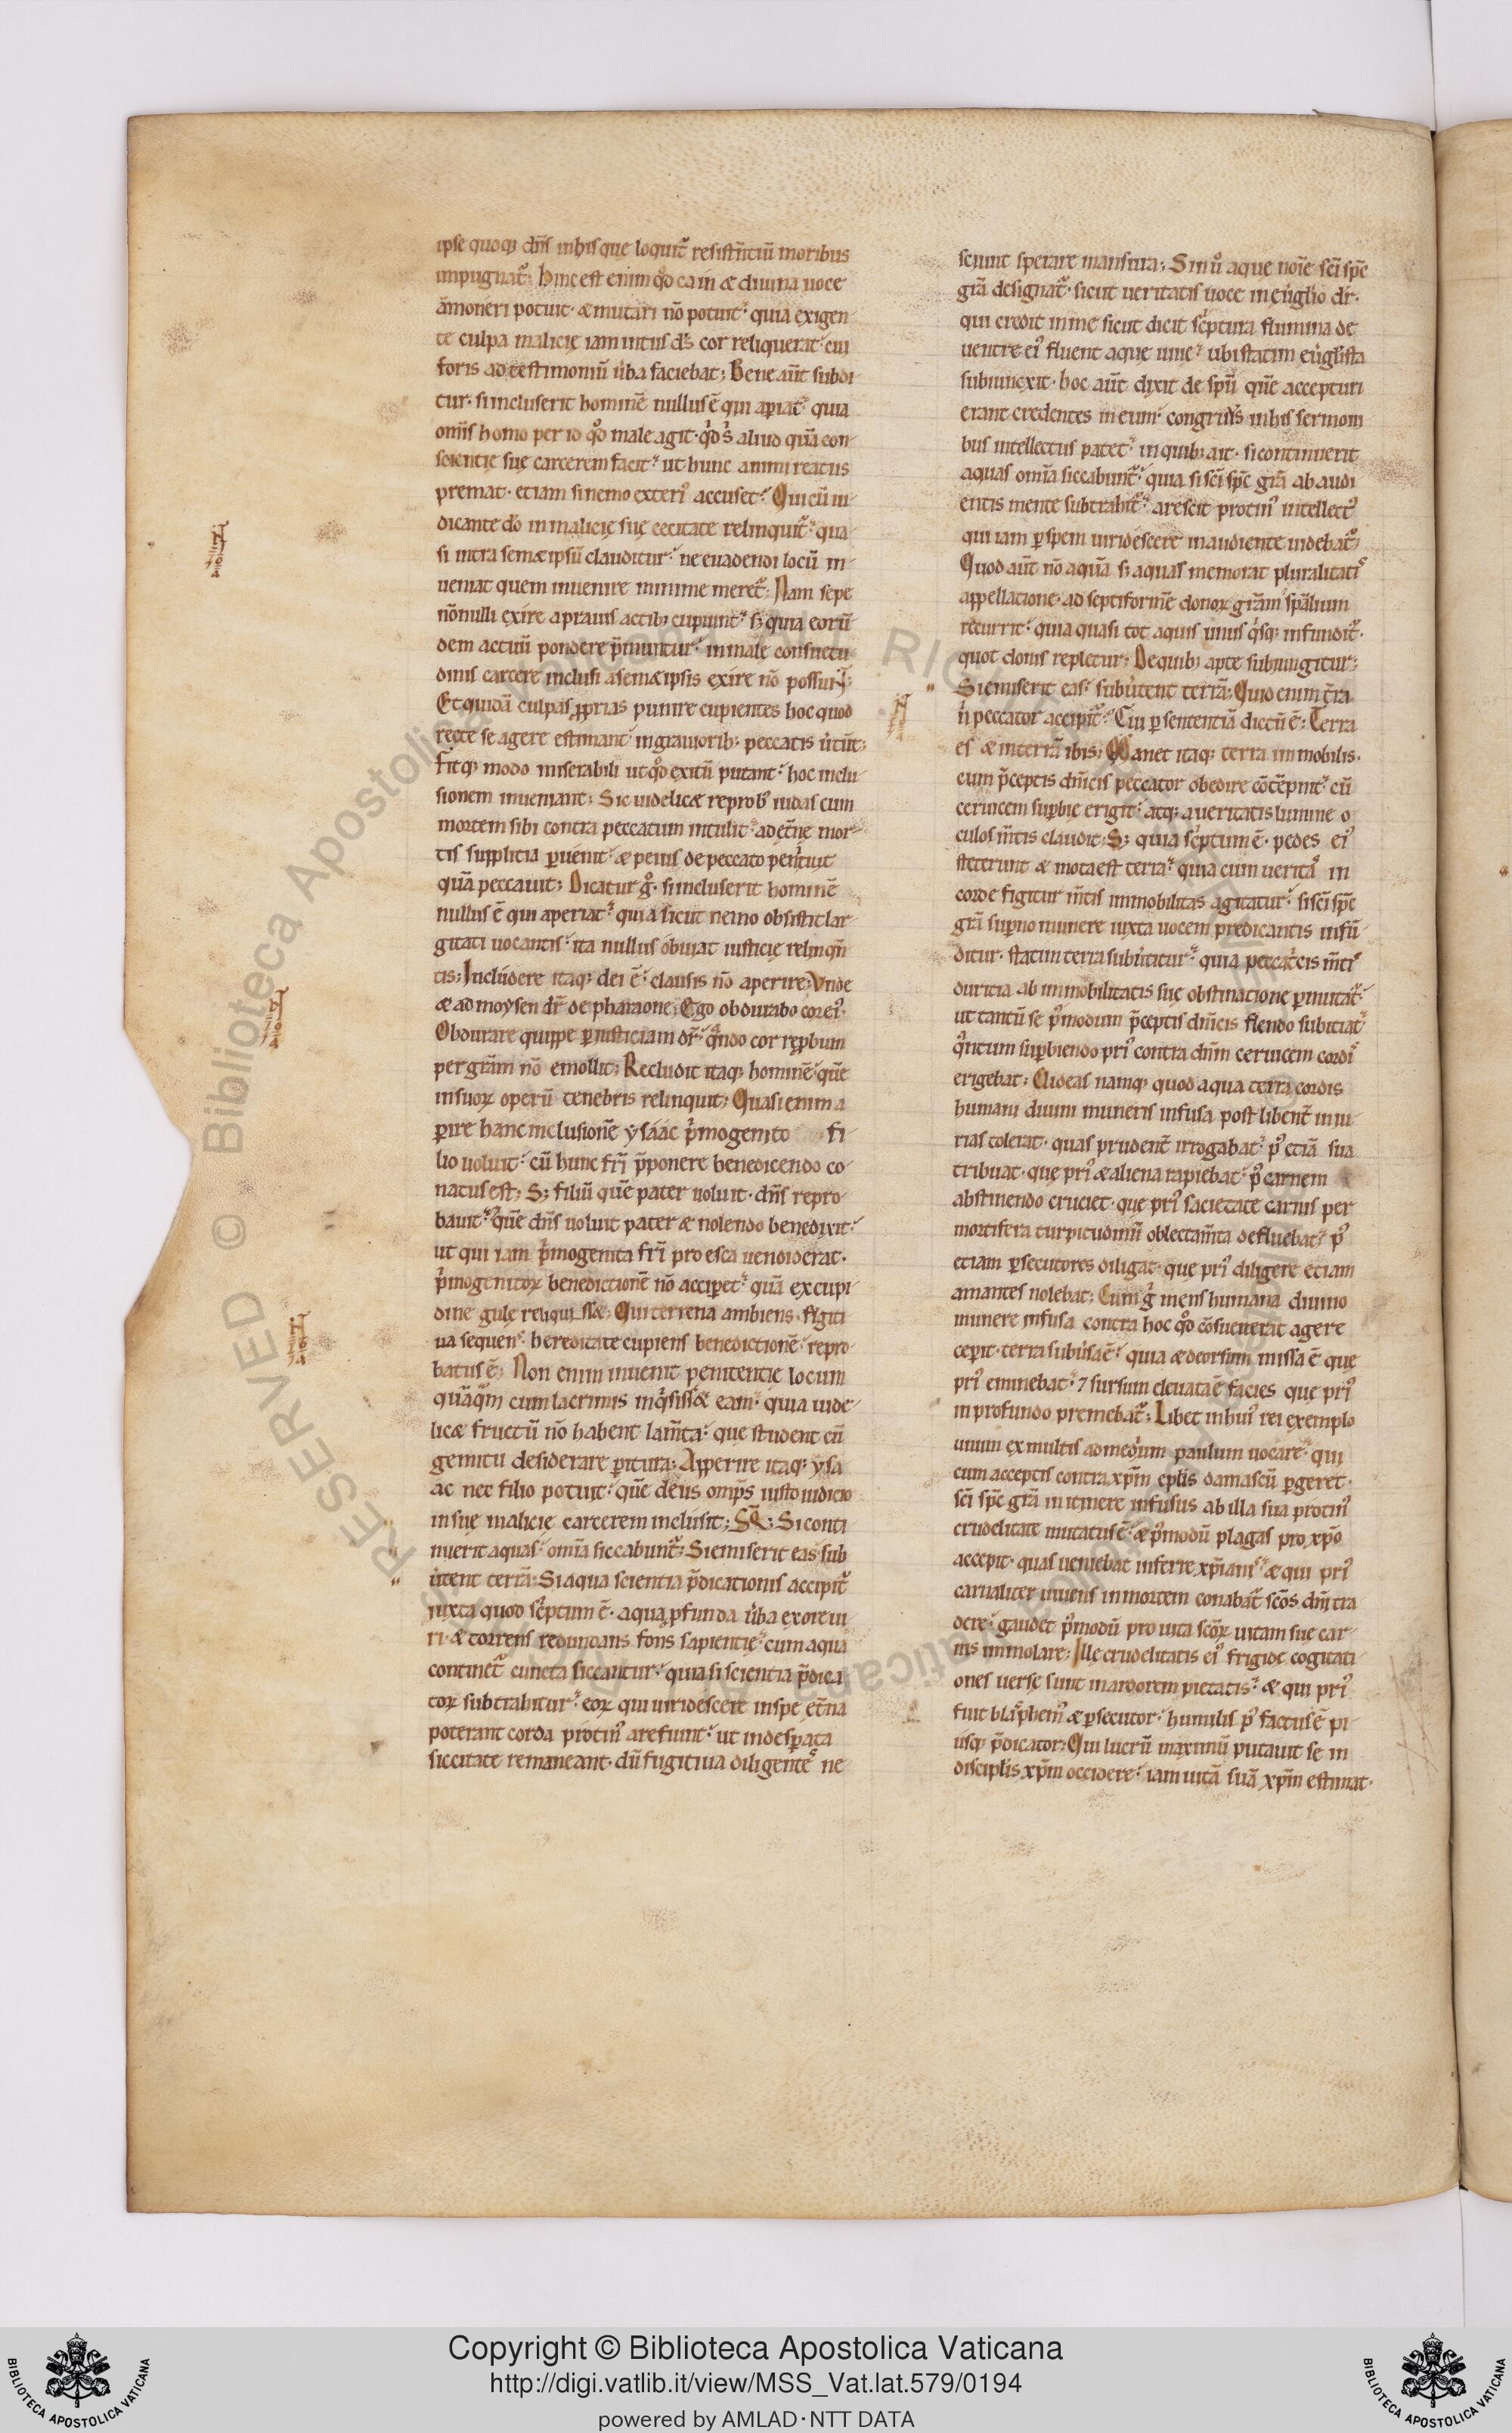 ipse quoq; dn̄s inhis que loquit᷑ resistñtiū moribus
impugnat᷑. hinc est enim qđ cain & diuina uoce
āmoneri potuit. & mutari nō potuit. quia exigen
te culpa malicię iam intus d̄s cor reliquerat. cui
foris ad testimoniū ůba faciebat; Bene aūt subdi
tur. si incluserit hominē nullus ē qui apiat. quia
omīs homo per id qđ male agit. qͥd s̄ aliud quā con
scientię suę carcerem facit. ut hunc animi reatus
premat. etiam si nemo exteriꝰ accuset. Qui cū iu
dicante dō in malicię suę cecitate relinquit᷑. qua
si intra sem&ipsū clauditur. ne euadendi locū in
ueniat quem inuenire minime meret᷑. Nam sepe
nōnulli exire a prauis actib; cupiunt. s; quia eorū
dem actuū pondere p̄muntur. in male consuetu
dinis carcere inclusi a sem&ipsis exire nō possunt;
Et quidā culpas ꝓprias punire cupientes hoc quod
recte se agere estimant in grauiorib; peccatis ůtūt;
fitq; modo miserabili ut qđ exitū putant. hoc inclu
sionem inueniant; Sic uidelic& reprobꝰ iudas cum
mortem sibi contra peccatum intulit. ad et̄ne mor
tis supplicia ꝑuenit. & peius de peccato penituit
quā peccauit; Dicatur ǵ. si incluserit hominē
nullus ē qui aperiat. quia sicut nemo obsistit lar
gitati uocantis. ita nullus obuiat iusticię relinqn̄
tis; Includere itaq; dei ē. clausis nō aperire; Vnde
& ad moysen dr̄ de pharaone; Ego obdurabo cor eiꝰ.
Obdurare quippe ꝑ iusticiam dr̄. qͣndo cor rep̱bum
per grām nō emollit; Recludit itaq; hominē. quē
in suoꝝ operū tenebris relinquit; Quasi enim a
ꝑire hanc inclusionē ysaac pͥmogenito fi
lio uoluit. cū hunc fr̄i p̄ponere benedicendo co
natus est; S; filiū quē pater uoluit. dn̄s repro
bauit. quē dn̄s uoluit pater & nolendo benedixit.
ut qui iam pͥmogenita fr̄i pro esca uendiderat.
pͥmogenitoꝝ benedictionē nō acciꝑet. quā ex cupi
dine gulę reliquiss&; Qui terrena ambiens. fugiti
ua sequens. hereditate cupiens benedictionē. repro
batus ē; Non enim inuenit penitentię locum
quāqͣm cum lacrimis inqͥsiss& eam. quia uide
lic& fructū nō habent lam̄ta. que student cū
gemitu desiderare ꝑitura; Apperire itaq; ysa
ac nec filio potuit. quē deus omp̄s iusto iudicio
in suę malicię carcerem inclusit; SQ̄; Si conti
nuerit aquas. omīa siccabunt᷑; Si emiserit eas sub
ůtent terrā; Si aqua scientia p̄dicationis accipit᷑
iuxta quod scͥptum ē. aqua ꝓfunda ůba ex ore ui
ri. & torrens redundans fons sapientię. cum aqua
continet᷑ cuncta siccantur. quia si scientia p̄dica
toꝝ subtrahitur. eoꝝ qui uiridescere in spe et̄na
poterant corda protinꝰ arefiunt. ut in desꝑata
siccitate remaneant. dū fugitiua diligentes ne
sciunt sperare mansura; Sin ů aque noīe sc̄i sp̄c
grā designat᷑. sicut ueritatis uoce in euglio dr̄.
qui credit in me sicut dicit scͥptura flumina de
uentre eiꝰ fluent aque uiue. ubi statim euglista
subiunxit. hoc aūt dixit de spū quē accepturi
erant credentes in eum. congruꝰ his sermoni
bus intellectus patet. in quib; ait. si continuerit
aquas omīa siccabunt᷑. quia si sc̄i sp̄c grā ab audi
entis mente subtrahit᷑. arescit protinꝰ intellectꝰ
qui iam ꝑ spem uiridescere in audiente uidebat᷑;
Quod aūt nō aquā s; aquas memorat pluralitatis
appellatione. ad septiformē donoꝝ grām spālium
recurrit. quia quasi tot aquis unus qͥsq; infundit᷑.
quot donis repletur; De quib; apte subiungitur;
Si emiserit eas. subůtent terrā; Quid enim t̄ra
n̄ peccator accipit᷑. Cui ꝑ sententiā dictū ē; Terra
es & in terrā ibis; Manet itaq; terra immobilis.
cum p̄ceptis dn̄icis peccator obedire cōtēpnit. cū
ceruicem suꝑbie erigit. atq; a ueritatis lumine o
culos m̄tis claudit; S; quia scͥptum ē. pedes eiꝰ
steterunt & mota est terra. quia cum ueritas in
corde figitur m̄tis immobilitas agitatur. si sc̄i sp̄c
grā suꝑno munere iuxta uocem predicantis infū
ditur. statim terra subůtitur. quia peccatͥcis m̄tis
duritia ab immobilitatis suę obstinatione ꝑmutat᷑.
ut tantū se p̄modum p̄ceptis dn̄icis flendo subiciat.
qͣntum suꝑbiendo priꝰ contra dn̄m ceruicem cordis
erigebat; Uideas namq; quod aqua terra cordis
humani diuini muneris infusa. post libent̄ iniu
rias tolerat. quas prudent̄ irrogabat. pꝰ etiā sua
tribuat. que priꝰ & aliena rapiebat. pꝰ carnem
abstinendo cruciet. que priꝰ sacietate carnis per
mortifera turpitudinū oblectam̄ta defluebat. pꝰ
etiam ꝑsecutores diligat. que priꝰ diligere etiam
amantes nolebat; Cum g̊ mens humana diuino
munere infusa contra hoc qđ cōsueuerat agere
ceꝑit. terra subůsa ē. quia & deorsum missa ē que
priꝰ eminebat. ⁊ sursum eleuata ē facies que priꝰ
in profundo premebat᷑; Libet in huiꝰ rei exemplo
unum ex multis ad medium paulum uocare. qui
cum acceptis contra xp̄m eplis damascū ꝑgeret.
sc̄i sp̄c grā in itinere infusus ab illa sua protinꝰ
crudelitate mutatus ē. & p̄modū plagas pro xp̄o
accepit. quas ueniebat inferre xp̄ianis. & qui priꝰ
carnaliter uiuens in mortem conabat᷑ scōs dn̄i tra
dere. gaudet p̄modū pro uita scōꝝ uitam sue car
nis immolare; Ille crudelitatis eiꝰ frigide cogitati
ones uerse sunt in ardorem pietatis. & qui priꝰ
fuit blasphemꝰ & ꝑsecutor. humilis pꝰ factus ē pi
usq; p̄dicator; Qui lucrū maximū putauit se in
disciplis xp̄m occidere. iam uitā suā xp̄m estimat.
Copyright © Biblioteca Apostolica Vaticana
http://digi.vatlib.it/view/MSS_Vat.lat.579/0194
powered by AMLAD·NTT DATA
BIBLIOTECA APOSTOLICA VATICANA
BIBLIOTECA APOSTOLICA VATICANA